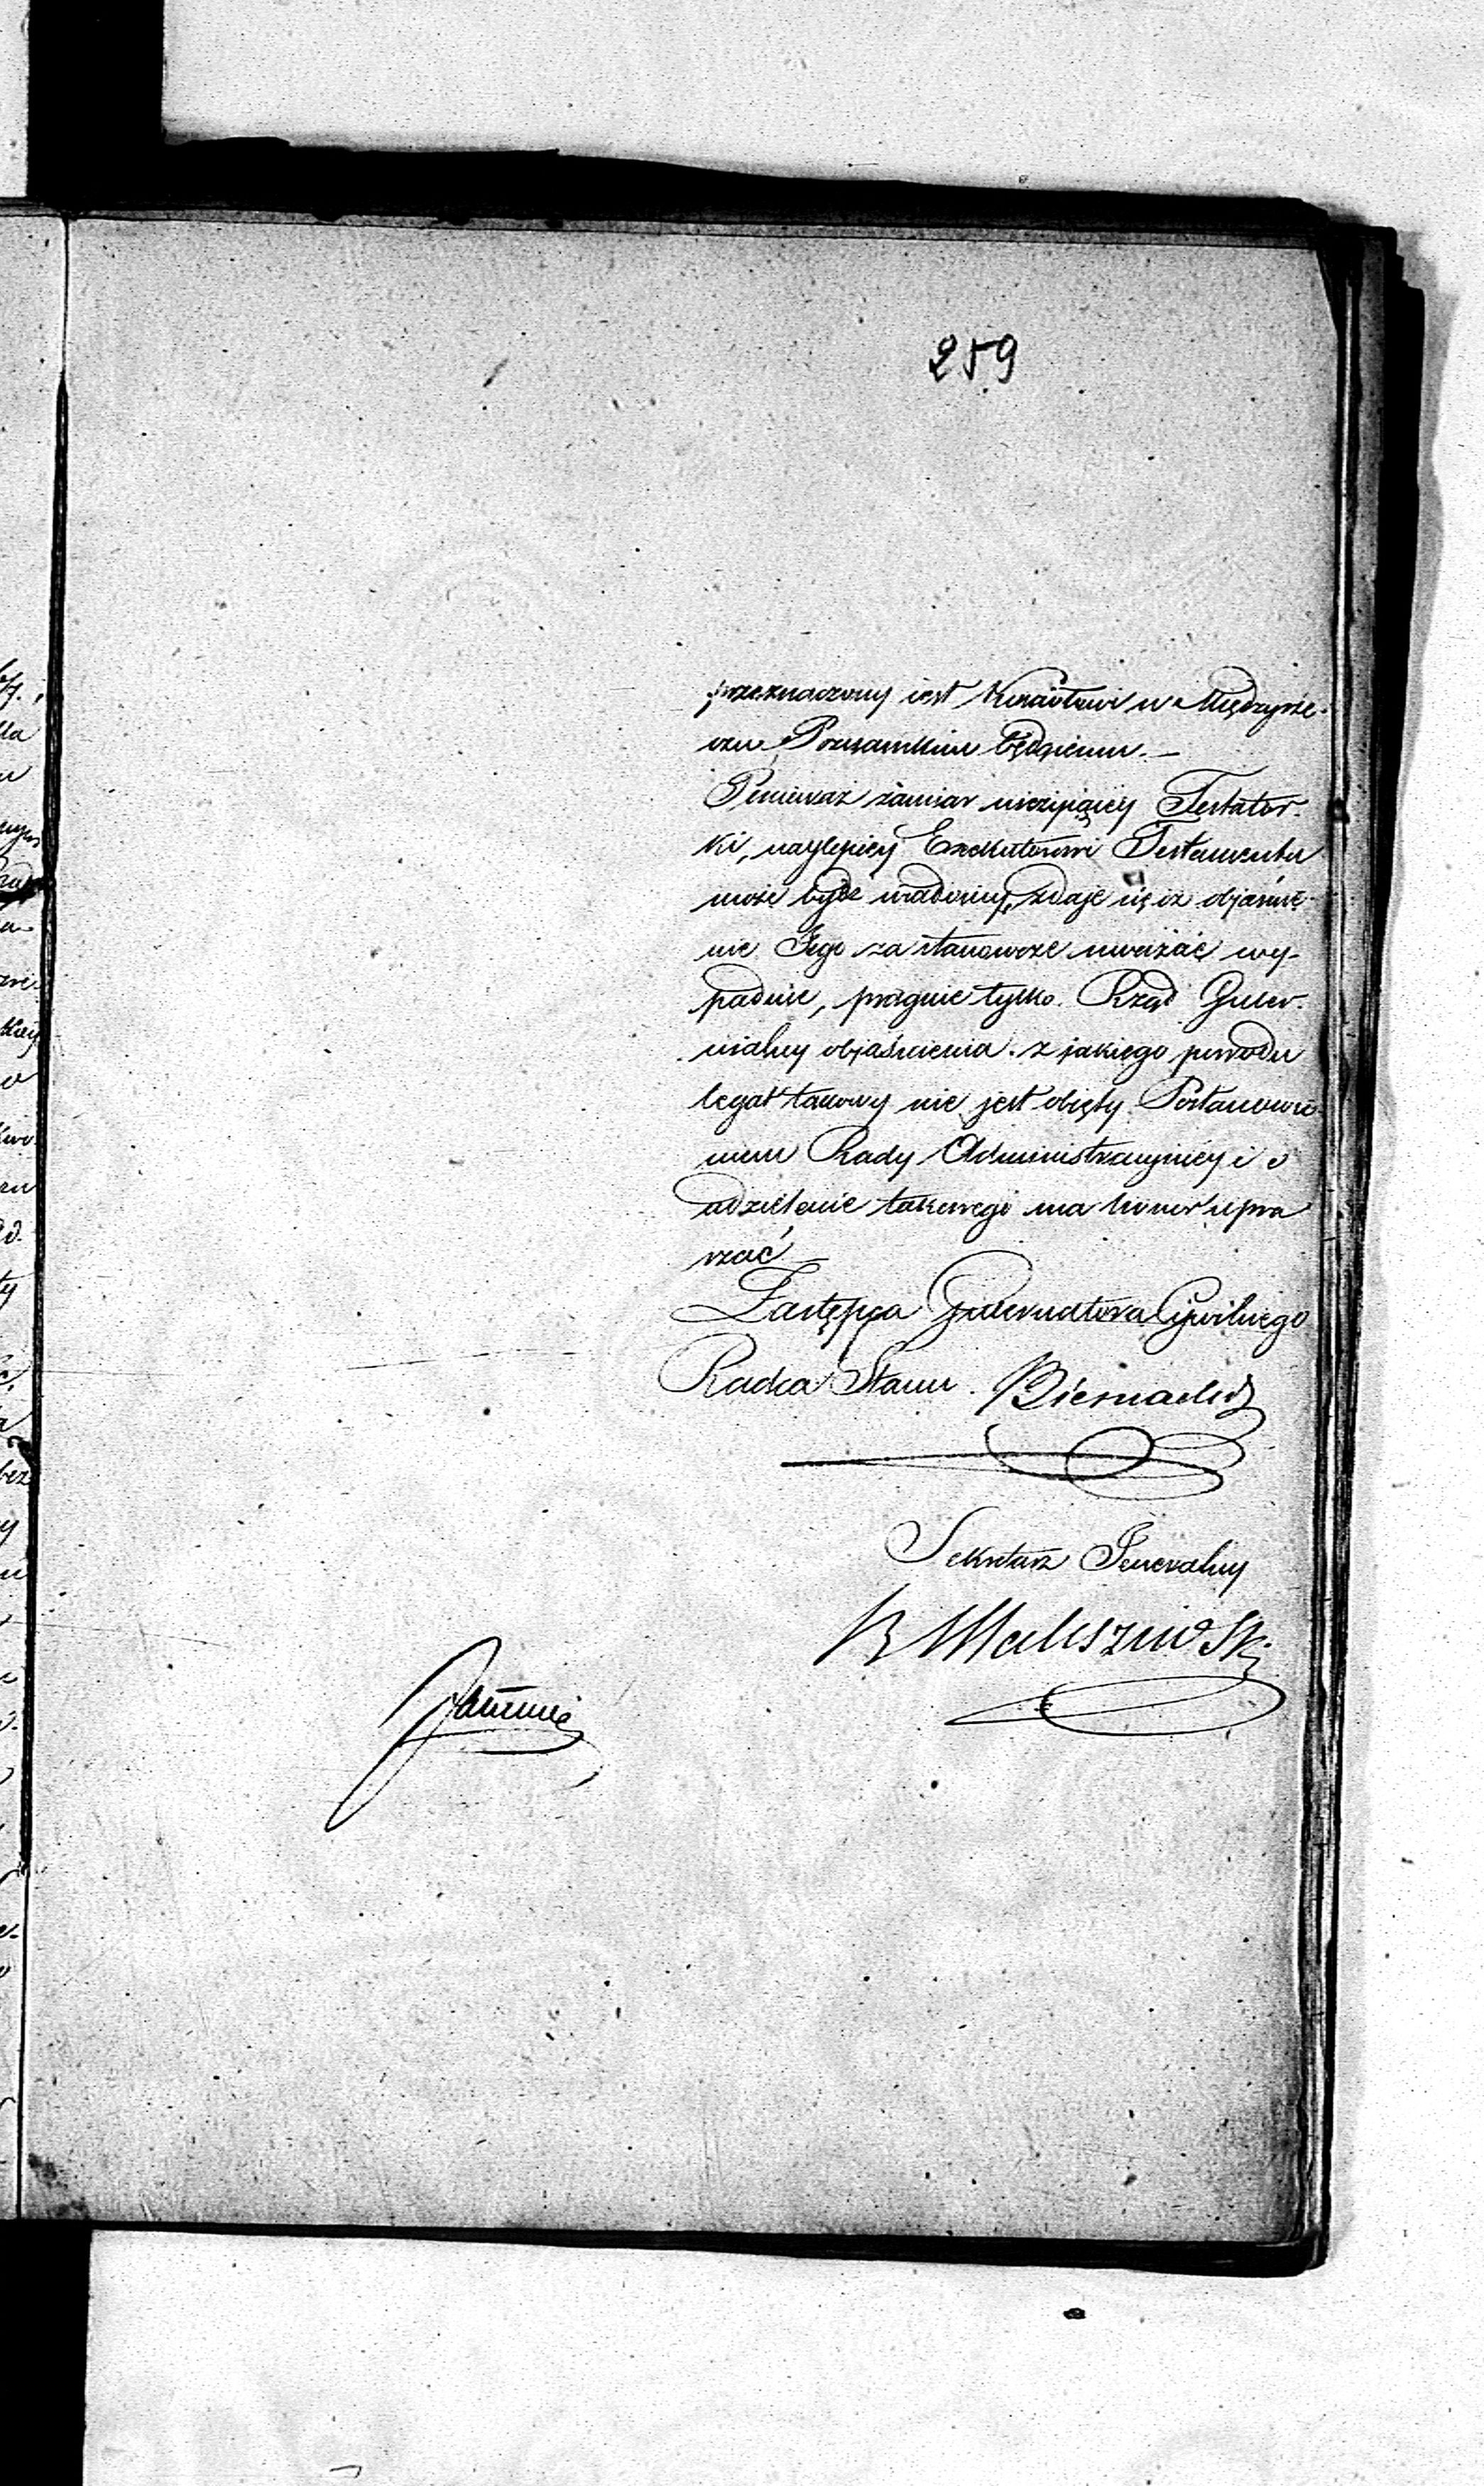 259
przeznaczony iest Kościołowi w Międzyrze-
czu Poznańskim będącemu. —
Ponieważ zamiar nieżyiącéy Testator-
ki, naylepiéy Exekutorowi Testamentu
może bydź wiadomy, zdaje się iż objaśnie-
nie Jego za stanowcze uważać wy-
padnie, pragnie tylko Rząd Guber-
nialny objaśnienia z jakiego powodu
legat takowy nie jest obięty Postanowie-
niem Rady Administracyinéy i o
udzielenie takowego ma honor upra
szać —
Zastępca Gubernatora Cywilnego
Radca Stanu Biernacki
Sekretarz Generalny
B Maliszewski